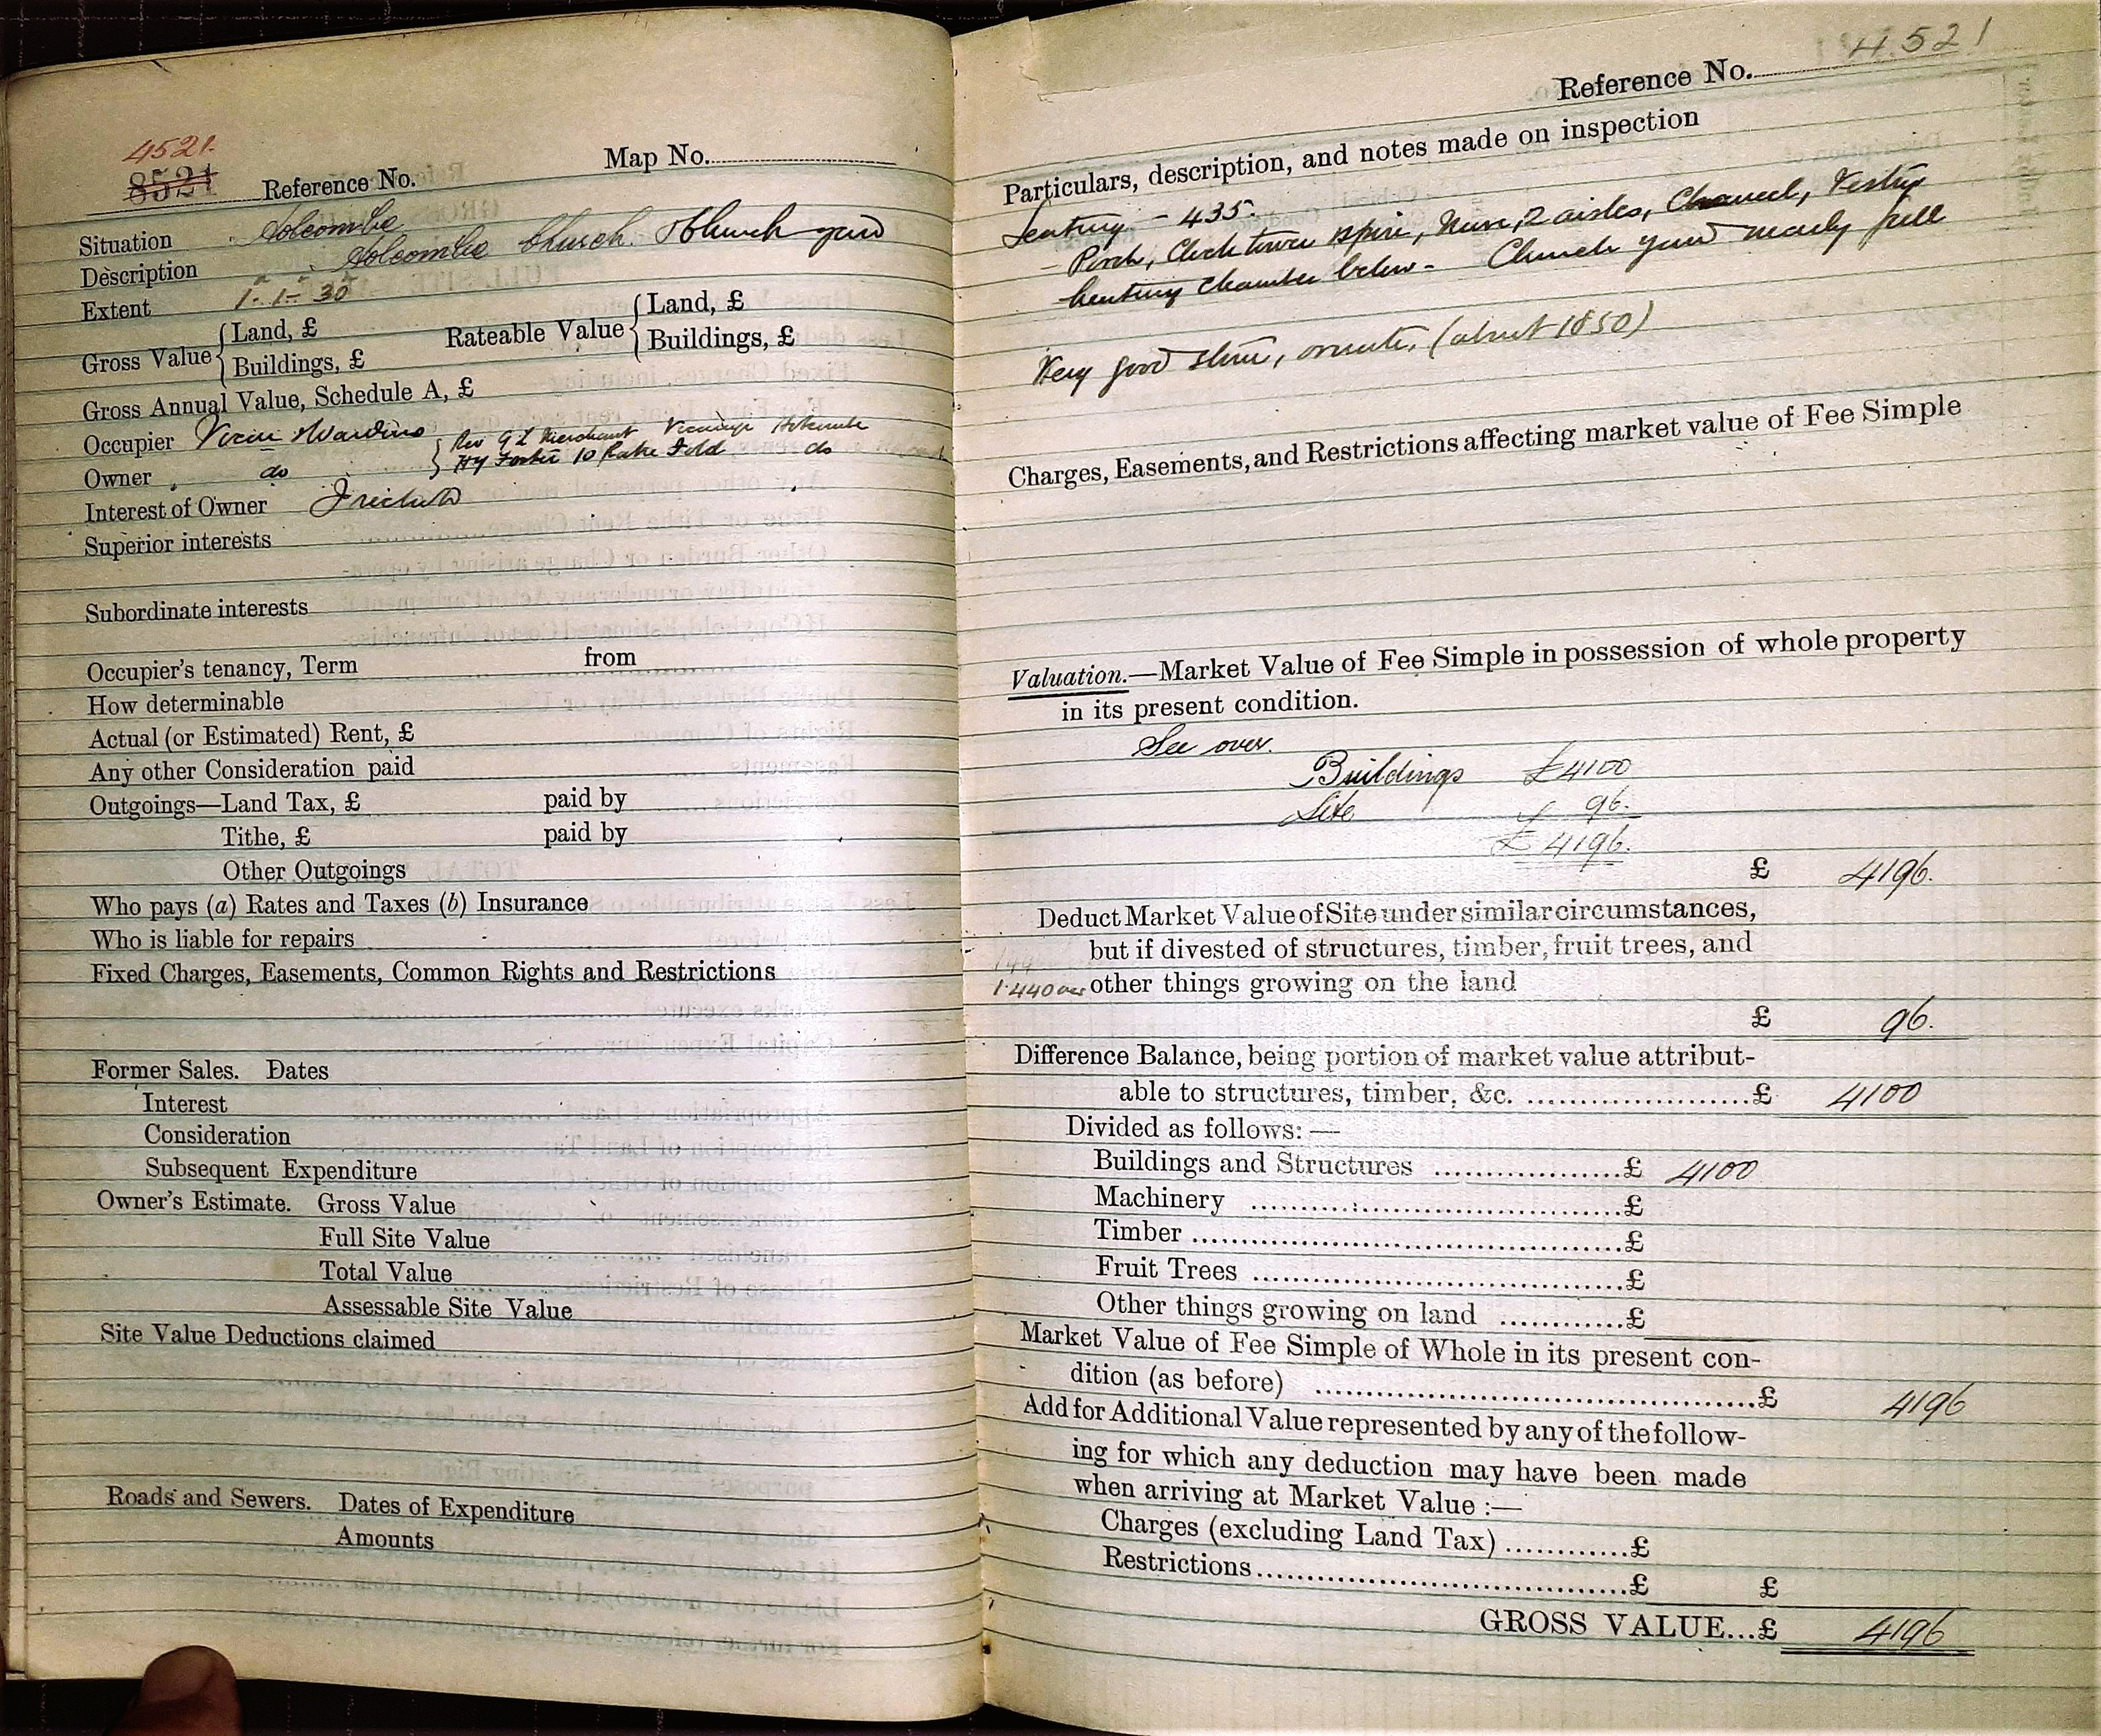 4521.
8521 Reference No. Map No.
Situation Holcombe
Description Holcombe Church & Church yard
Extent 1 - 1 - 30
Gross Value { Land, £ Rateable Value { Land, £
Buildings, £ Buildings, £
Gross Annual Value, Schedule A, £
Occupier Vicar & Wardens { Rev Merchant Vicarage Holcombe
Owner do } Hy Foster 10 Rake Fold do
Interest of Owner Freehold
Superior interests
Subordinate interests
Occupier's tenancy, Term from
How determinable
Actual (or Estimated) Rent, £
Any other Consideration paid
Outgoings—Land Tax, £ paid by
Tithe, £ paid by
Other Outgoings
Who pays (a) Rates and Taxes (b) Insurance
Who is liable for repairs
Fixed Charges, Easements, Common Rights and Restrictions
Former Sales. Dates
Interest
Consideration
Subsequent Expenditure
Owner's Estimate. Gross Value
Full Site Value
Total Value
Assessable Site Value
Site Value Deductions claimed
Roads and Sewers. Dates of Expenditure
Amounts
Reference No. 4521
Particulars, description, and notes made on inspection
Seating - 435.
- Porch, Clock tower & spire, Nave, 2 aisles, Chancel, Vestry
heating chamber below - Church yard nearly full
Very good stone, ornate, (about 1850)
Charges, Easements, and Restrictions affecting market value of Fee Simple
Valuation.—Market Value of Fee Simple in possession of whole property
in its present condition.
See over.
Buildings £4100
Site 96.
£ 4196.
£ 4196.
Deduct Market Value of Site under similar circumstances,
but if divested of structures, timber, fruit trees, and
1.440 ac other things growing on the land
£ 96.
Difference Balance, being portion of market value attribut-
able to structures, timber, &c. ..................... £ 4100
Divided as follows:—
Buildings and Structures .................. £ 4100
Machinery .................................... £
Timber .......................................... £
Fruit Trees .................................... £
Other things growing on land ............ £
Market Value of Fee Simple of Whole in its present con-
dition (as before) .......................................... £ 4196
Add for Additional Value represented by any of the follow-
ing for which any deduction may have been made
when arriving at Market Value :—
Charges (excluding Land Tax) ............ £
Restrictions .................................... £ £
GROSS VALUE...£ 4196